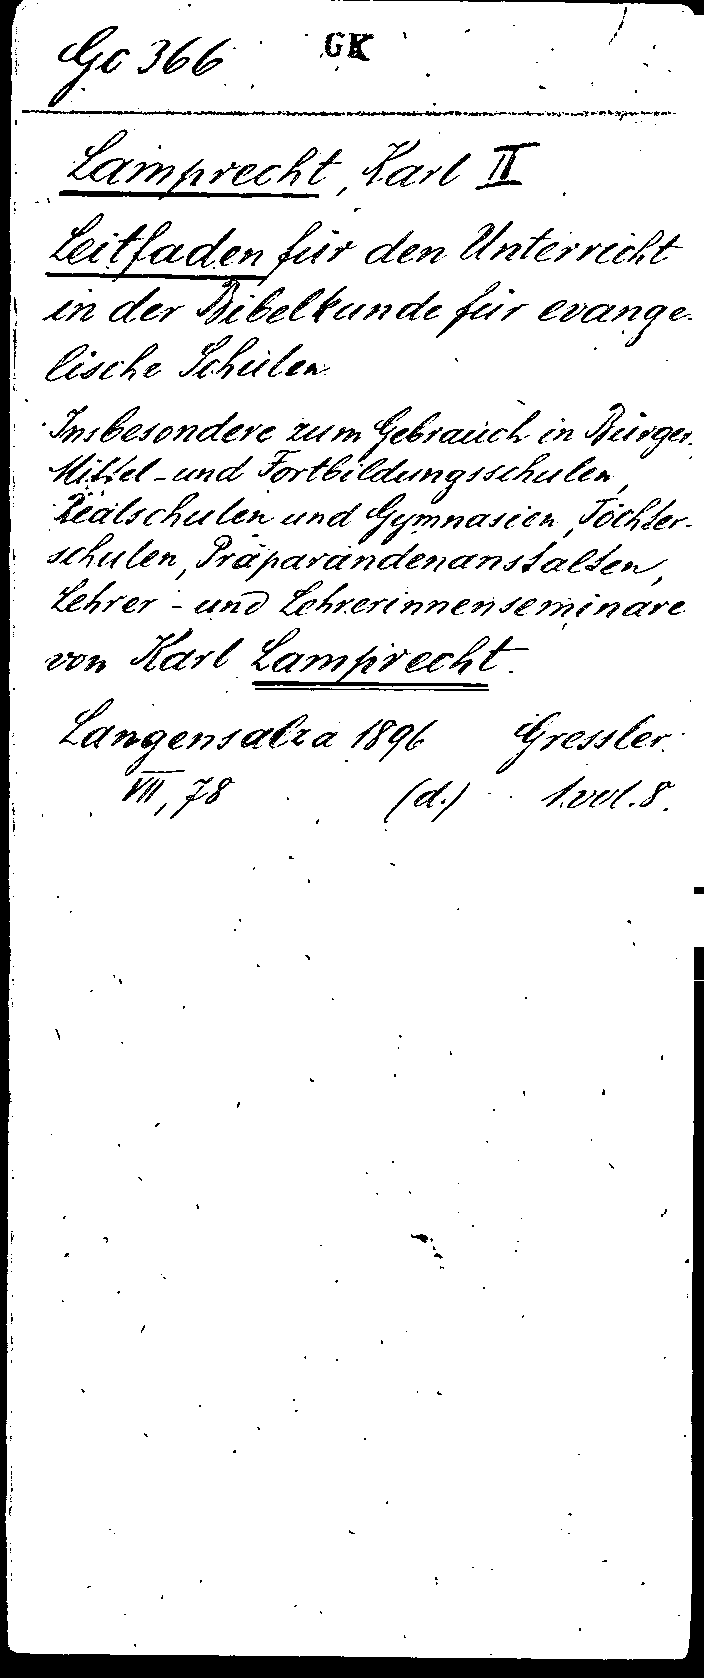 Gc 366 GK
Lamprecht, Karl II
Leitfaden für den Unterricht
in der Bibelkunde für evange-
lische Schulen
Insbesondere zum Gebrauch in Bürger,
Mittel- und Fortbildungsschulen,
Realschulen und Gymnasien, Töchter-
schulen, Präparandenanstalten,
Lehrer- und Lehrerinnenseminare
von Karl Lamprecht.
Langensalza 1896 Gressler.
VII, 78 (d.) 1.vol.8.